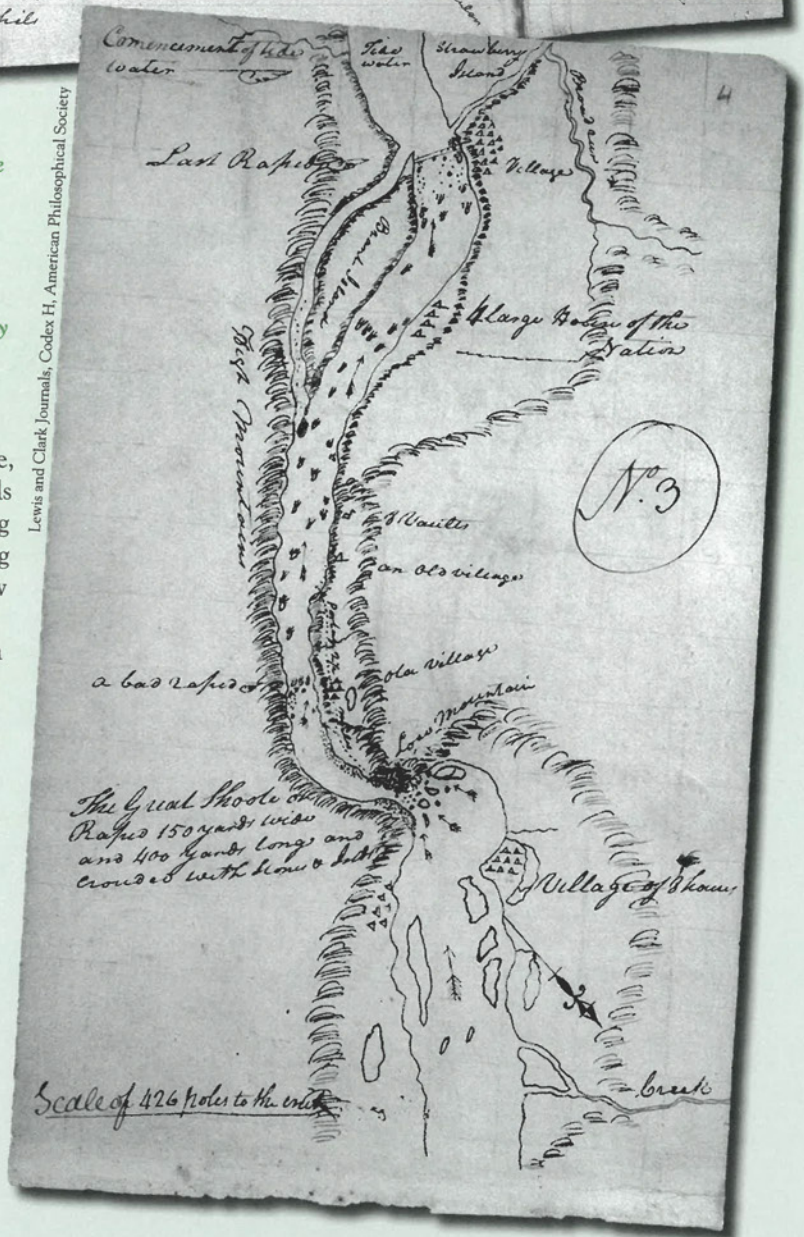 Lewis and Clark Journals, Codex H, American Philosophical Society
4
Comencement of tide
water
Tide
water
Strawberry
Island
Last Rapid
Village
Brant Island
4 large Houses of the
Nation
High Mountains
No. 3
8 Vaults
an Old village
a bad rapid
old village
Low Mountain
The Great Shoote or
Rapid 150 yards wide
and 400 yards long and
crouded with Stones &
Village of 8 houses
Creek
Scale of 426 poles to the inch